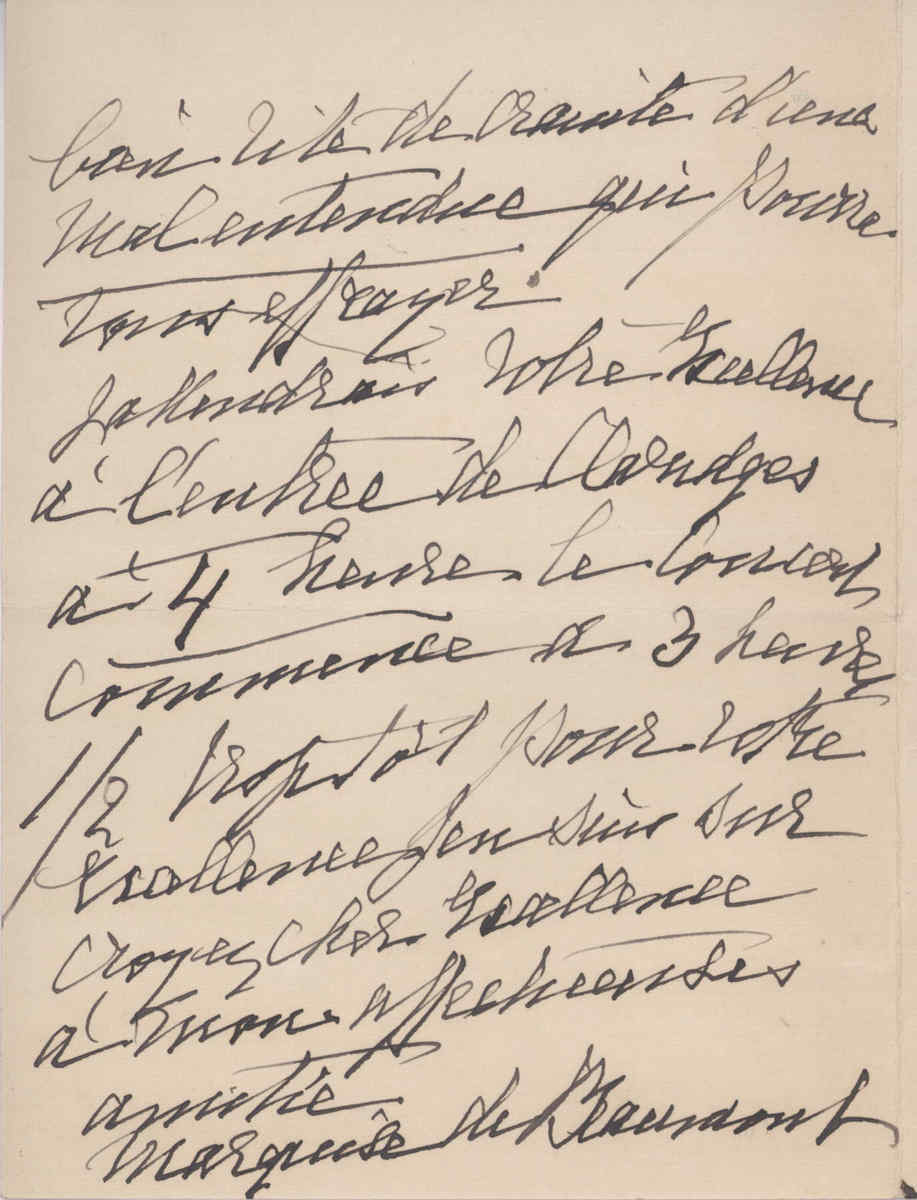 bien vite de crainte d'une
malentendue qui pourra
vous effrayer.
J'attendrais votre Excellence
à l'entrée de Claridges
à 4 heure. le Concert
commence à 3 heures
1/2 trop tôt pour votre
Excellence j'en suis sur
croyez cher Excellence
à mon affectueuses
amitié
Marquise de Beaumont